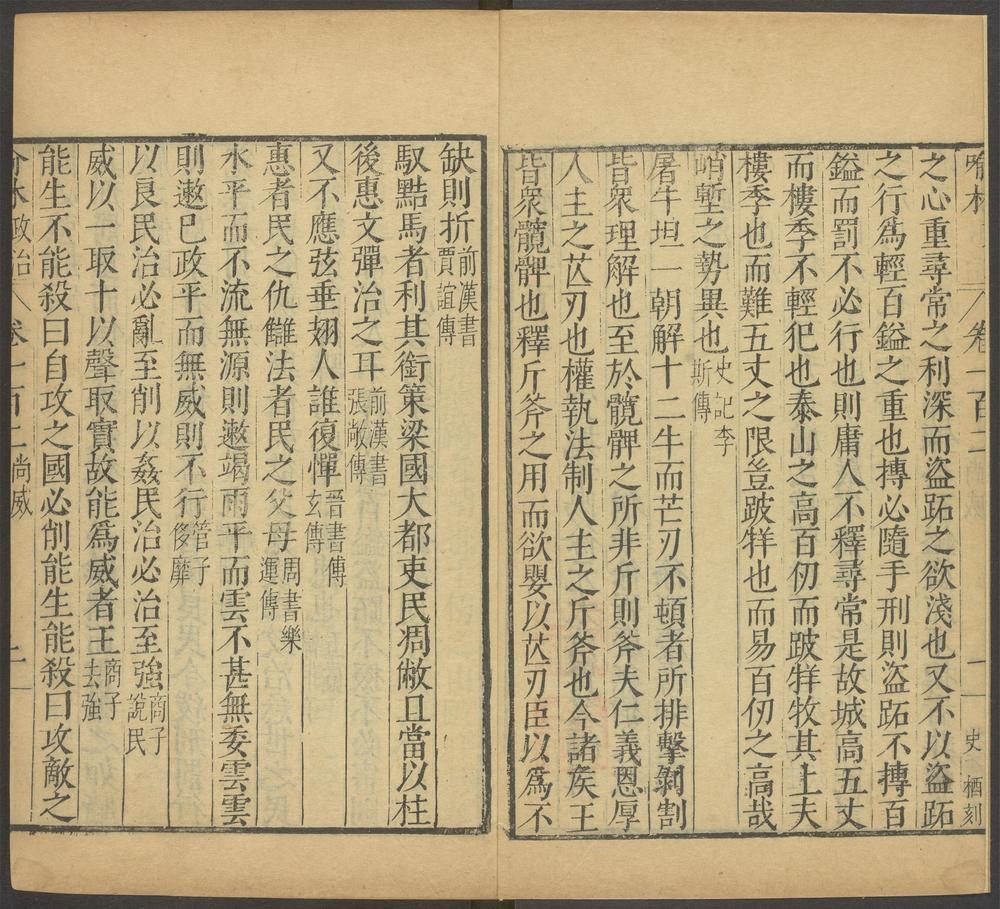 喻林 卷一百二 一 史栖刻
之心重尋常之利深而盜跖之欲淺也又不以盜跖
之行爲輕百鎰之重也搏必隨手刑則盜跖不搏百
鎰而罰不必行也則庸人不釋尋常是故城高五丈
而樓季不輕犯也泰山之高百仞而跛牂牧其上夫
樓季也而難五丈之限豈跛牂也而易百仞之高哉
峭塹之勢異也史記李斯傳
屠牛坦一朝解十二牛而芒刃不頓者所排擊剝割
皆衆理解也至於髖髀之所非斤則斧夫仁義恩厚
人主之芒刃也權執法制人主之斤斧也今諸矦王
皆衆髖髀也釋斤斧之用而欲嬰以芒刃臣以爲不
缺則折前漢書賈誼傳
馭黠馬者利其銜策梁國大都吏民凋敝且當以柱
後惠文彈治之耳前漢書張敞傳
又不應弦垂翅人誰復憚晉書傳玄傳
惠者民之仇讎法者民之父母周書樂運傳
水平而不流無源則遬竭雨平而雲不甚無委雲雲
則遬已政平而無威則不行管子侈靡
以良民治必亂至削以姦民治必治至強商子說民
威以一取十以聲取實故能爲威者王商子去強
能生不能殺曰自攻之國必削能生能殺曰攻敵之
政治 卷一百二 尚威 二